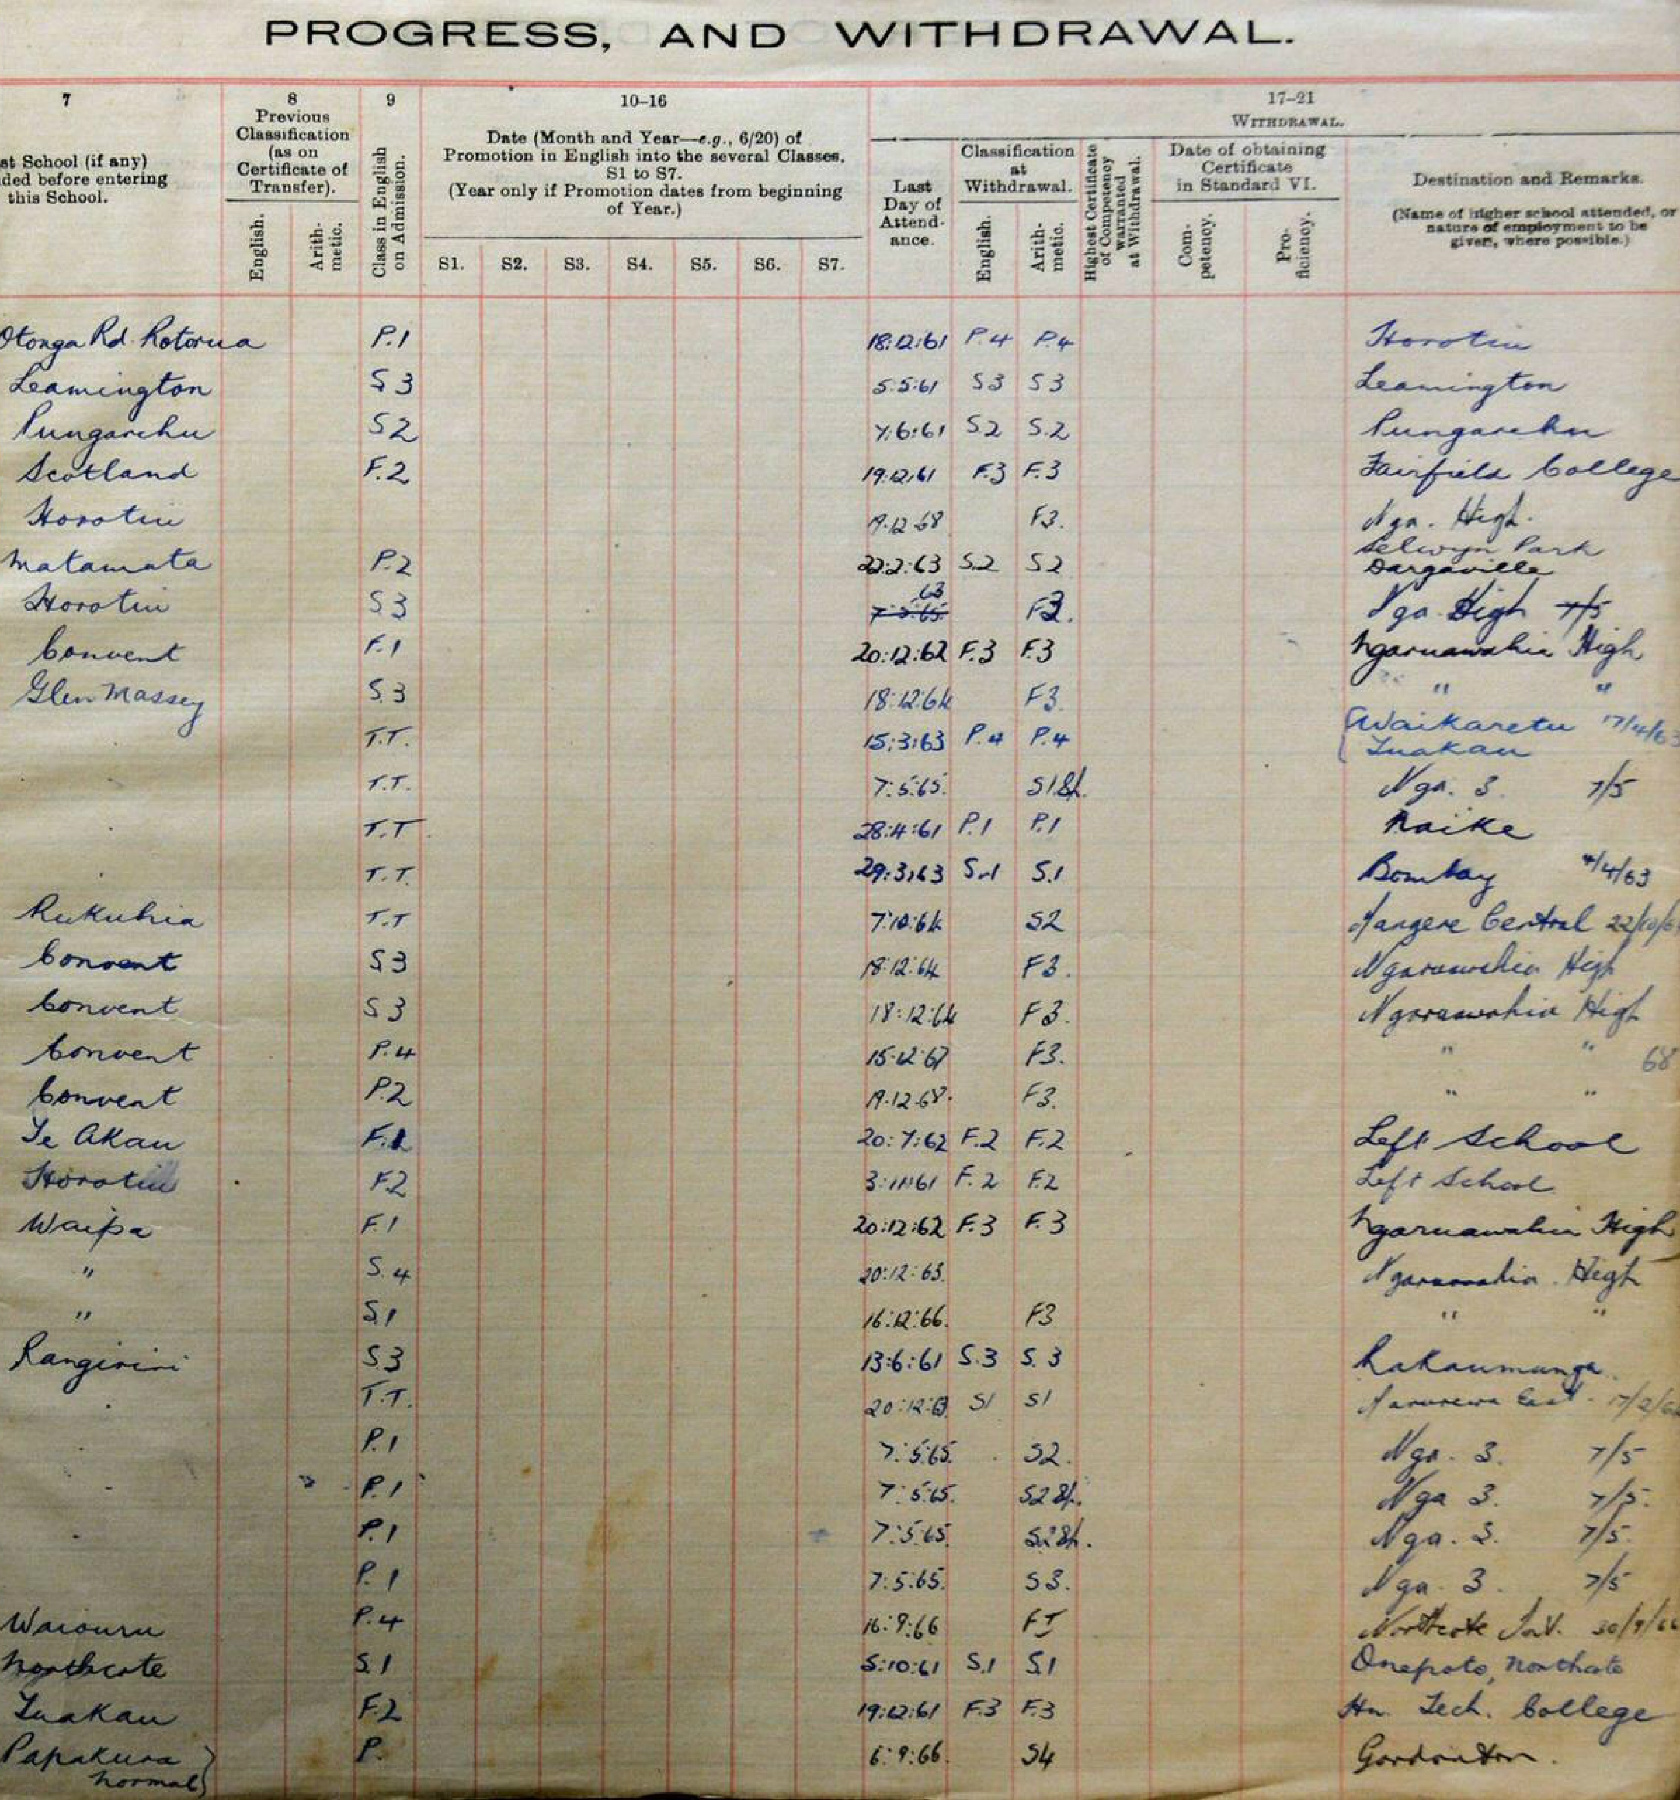 PROGRESS, AND WITHDRAWAL.
7
st School (if any)
ded before entering
this School.
8
Previous
Classification
(as on
Certificate of
Transfer).
English.
Arith-
metic.
9
Class in English
on Admission.
10–16
Date (Month and Year—e.g., 6/20) of
Promotion in English into the several Classes,
S1 to S7.
(Year only if Promotion dates from beginning
of Year.)
S1. S2. S3. S4. S5. S6. S7.
17–21
WITHDRAWAL.
Last
Day of
Attend-
ance.
Classification
at
Withdrawal.
English.
Arith-
metic.
Highest Certificate
of Competency
warranted
at Withdrawal.
Date of obtaining
Certificate
in Standard VI.
Com-
petency.
Pro-
ficiency.
Destination and Remarks.
(Name of higher school attended, or
nature of employment to be
given, where possible.)
Otonga Rd. Rotorua P.1 18:12:61 P.4 P.4 Horotiu
Leamington S3 5:5:61 S3 S3 Leamington
Pungarehu S2 7:6:61 S.2 S.2 Pungarehu
Scotland F.2 19:12:61 F.3 F.3 Fairfield College
Horotiu 19.12.68 F3. Nga. High.
Matamata P.2 22:2:63 S.2 S2 Selwyn Park
Dargaville
Horotiu S3 63 Nga High 7/5
Convent F.1 20:12:62 F.3 F.3 Ngaruawahia High
Glen Massey S.3 18:12:64 F3. " "
T.T. 15:3:63 P.4 P.4 Waikaretu 17/4/63
Tuakau
T.T. 7:5:65. Nga. 3. 7/5
T.T. 28:4:61 P.1 P.1 Naike
T.T. 29:3:63 S.1 S.1 Bombay /4/63
Rukuhia T.T 7:10:64 S2 Mangere Central 22/10/6
Convent S3 18:12:64 F3. Ngaruawahia High
Convent S3 18:12:64 F3. Ngaruawahia High
Convent P.4 15.12.67 F3. " " 68
Convent P.2 19.12.68. F3. " "
Te Akau F.1 20:7:62 F.2 F.2 Left School
Horotiu F.2 3:11:61 F.2 F.2 Left School
Waipa F.1 20:12:62 F.3 F.3 Ngaruawahia High
" S.4 20:12:63. Ngaruawahia. High
" S.1 16:12:66. F3 " "
Rangiriri S3 13:6:61 S.3 S.3 Rakaumanga.
T.T. 20:12:63 S1 S1 Manurewa East. 17/2/6
P.1 7:5:65. S2. Nga. 3. 7/5
P.1 7:5:65. Nga 3. 7/5.
P.1 7:5:65. Nga. 3. 7/5.
P.1 7:5:65. S3. Nga. 3. 7/5
Waiouru P.4 16:9:66 Northcote Int. 30/9/66
Northcote S.1 5:10:61 S.1 S.1 Onepoto, Northcote
Tuakau F.2 19:12:61 F.3 F.3 Hn. Tech. College
Papakura P. 6:9:66. S4 Gordonton.
Normal